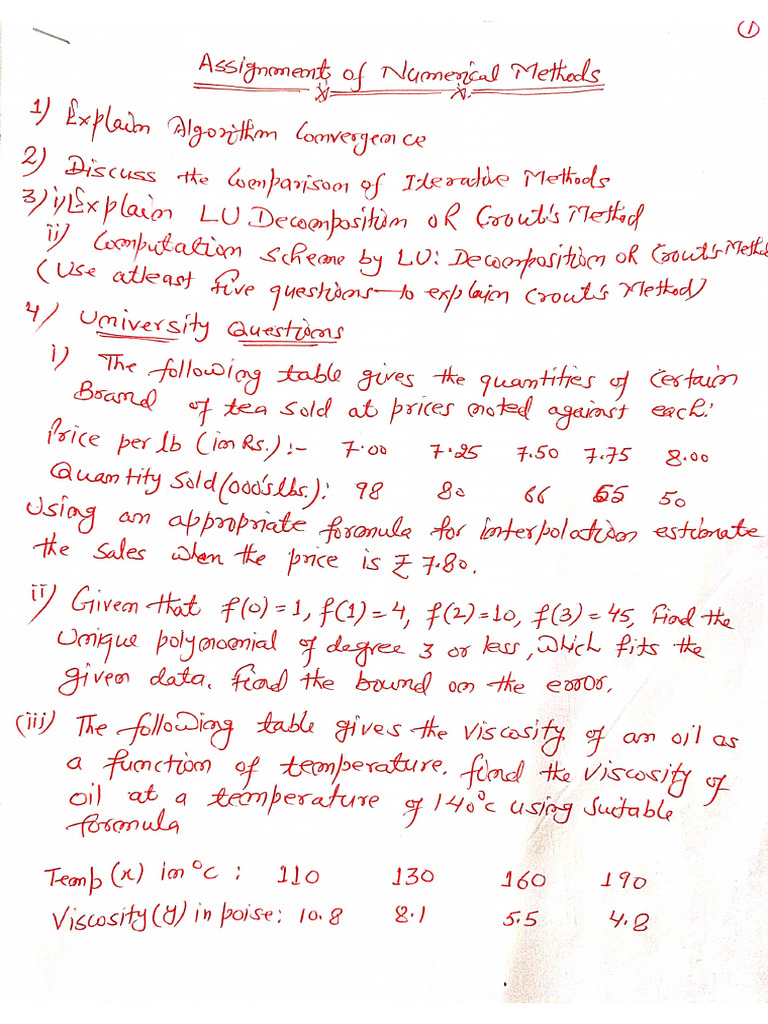 ①
Assignment of Numerical Methods
1) Explain Algorithm Convergence
2) Discuss the Comparison of Iterative Methods
3) i) Explain LU Decomposition OR Crout's Method
ii) Computation scheme by LU: Decomposition OR Crout's Method
(Use atleast five questions to explain Crout's Method)
4) University Questions
i) The following table gives the quantities of certain
Brand of tea sold at prices noted against each:
Price per lb (in Rs.) :- 7.00 7.25 7.50 7.75 8.00
Quantity Sold (000's lbs.): 98 80 66 55 50
Using an appropriate formula for interpolation estimate
the sales when the price is ₹ 7.80.
ii) Given that f(0)=1, f(1)=4, f(2)=10, f(3)=45, Find the
Unique polynomial of degree 3 or less, which fits the
given data. find the bound on the error.
(iii) The following table gives the viscosity of an oil as
a function of temperature. find the viscosity of
oil at a temperature of 140°c using suitable
formula
Temp (x) in °c : 110 130 160 190
Viscosity (y) in poise: 10.8 8.1 5.5 4.8